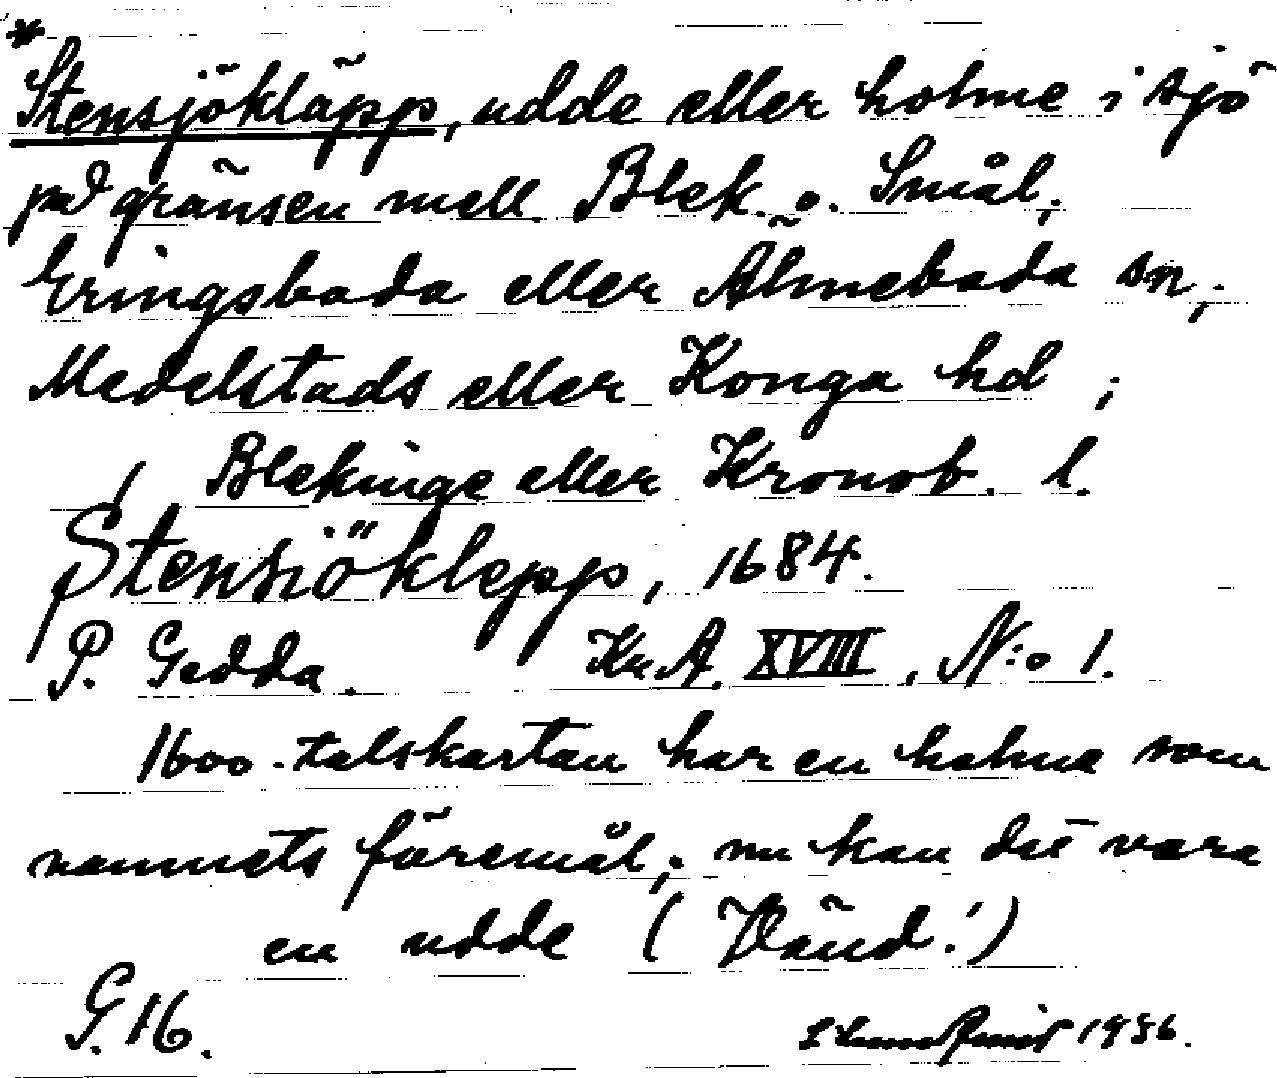 *
Stensjökläpp, udde eller holme i sjö
på gränsen mell. Blek. o. Smål;
Eringsboda eller Älmeboda sn;
Medelstads eller Konga hd;
Blekinge eller Kronob. l.
Stensiöklepp, 1684.
P. Gedda. Kr.A. XVIII, N:o 1.
1600-talskartan har en holme som
namnets föremål; nu kan det vara
en udde (Vänd!)
G. 16. 1936.